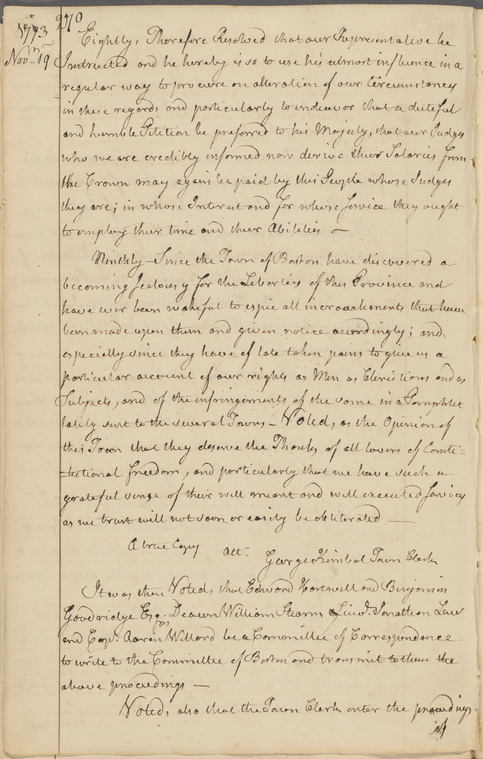 270
1773
Novm 19
Eightly, Therefore Resolved that our Representative be
Instructed and he hereby is so to use his utmost influence in a
regular way to procure an alteration of our Circumstances
in these regards and particularly to endeavor that a duteful
and humble Petition be preferred to his Majesty, that our Judges
who we are credibly informed now derive their Salaries from
the Crown may again be paid by this People whose Judges
they are; in whose Interest and for whose service they ought
to employ their time and their Abilities —
Ninthly — Since the Town of Boston have discovered a
becoming Jealousy for the Liberties of this Province and
have ever been wakeful to espie all incroachments that have
been made upon them and given notice accordingly; and
especially since they have of late taken pains to give us a
particular account of our rights as Men as Christians and as
Subjects, and of the infringements of the same in a Pamphlet
lately sent to the several Towns — Voted, as the Opinion of
this Town that they deserve the Thanks of all lovers of Consti-
-tutional freedom, and particularly that we have such a
grateful sense of their well meant and well executed Services
as we trust will not soon or easily be obliterated —
A true Copy Att. George Kimbal Town Clerk
It was then Voted, that Edward Hartwell and Benjamin
Goodridge Esq. Deacn William Stearn & Lieut. Jonathan Low
and Capt. Aaron Willard be a Committee of Correspondence
to write to the Committee of Boston and transmit to them the
above proceedings —
Voted, also that the Town Clerk enter the proceedings
of